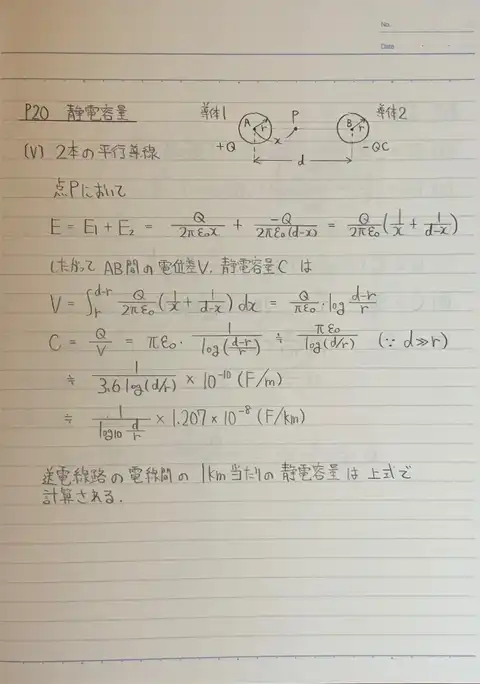 No.
Date
P20 静電容量
導体1 P 導体2
A r B r
x
+Q -QC
d
(V) 2本の平行導線
点Pにおいて
E = E₁ + E₂ = Q/2πε₀x + -Q/2πε₀(d-x) = Q/2πε₀ (1/x + 1/d-x)
したがって AB間の電位差V, 静電容量C は
V = ∫_r^{d-r} Q/2πε₀ (1/x + 1/d-x) dx = Q/πε₀ · log d-r/r
C = Q/V = πε₀ · 1/log(d-r/r) ≒ πε₀/log(d/r) (∵ d≫r)
≒ 1/3.6 log(d/r) × 10⁻¹⁰ (F/m)
≒ 1/log10 d/r × 1.207 × 10⁻⁸ (F/km)
送電線路の電線間の 1km当たりの静電容量は上式で
計算される.